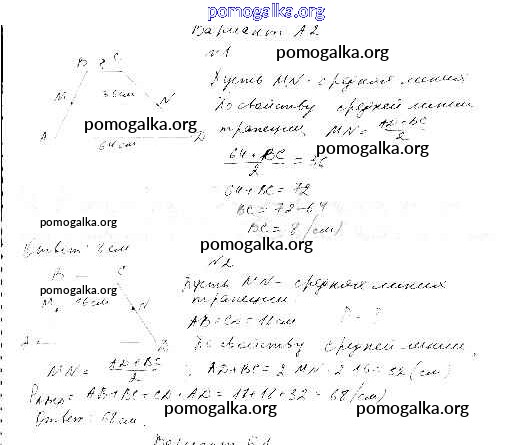 pomogalka.org
Вариант А2
№1
pomogalka.org
B ? C
36 см
M N
A D
64 см
pomogalka.org
Пусть MN - средняя линия
По свойству средней линии
трапеции MN = AD+BC / 2
pomogalka.org
64 + BC / 2 = 36
64+BC = 72
BC = 72-64
BC = 8 (см)
pomogalka.org
Ответ: 8 см
pomogalka.org
№2
B C
pomogalka.org
M 16 см N
A D
Пусть MN - средняя линия
трапеции.
AB=CD=18 см P - ?
По свойству средней линии
MN = AD+BC / 2 AD+BC = 2 MN = 2·16 = 32 (см)
PABCD = AB+BC+CD+AD = 18+18+32 = 68 (см)
Ответ: 68 см.
pomogalka.org
pomogalka.org
Вариант